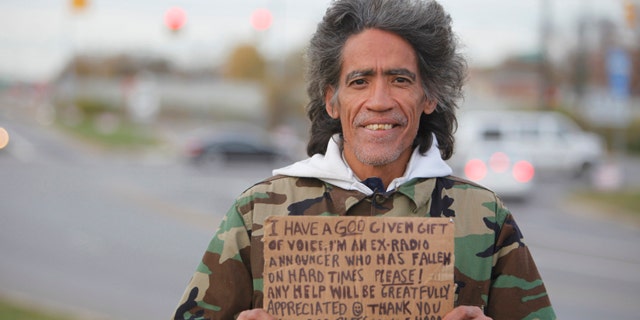 I HAVE A GOD GIVEN GIFT
OF VOICE. I'M AN EX-RADIO
ANNOUNCER WHO HAS FALLEN
ON HARD TIMES. PLEASE!
ANY HELP WILL BE GREATFULLY
APPRECIATED ☺ THANK YOU